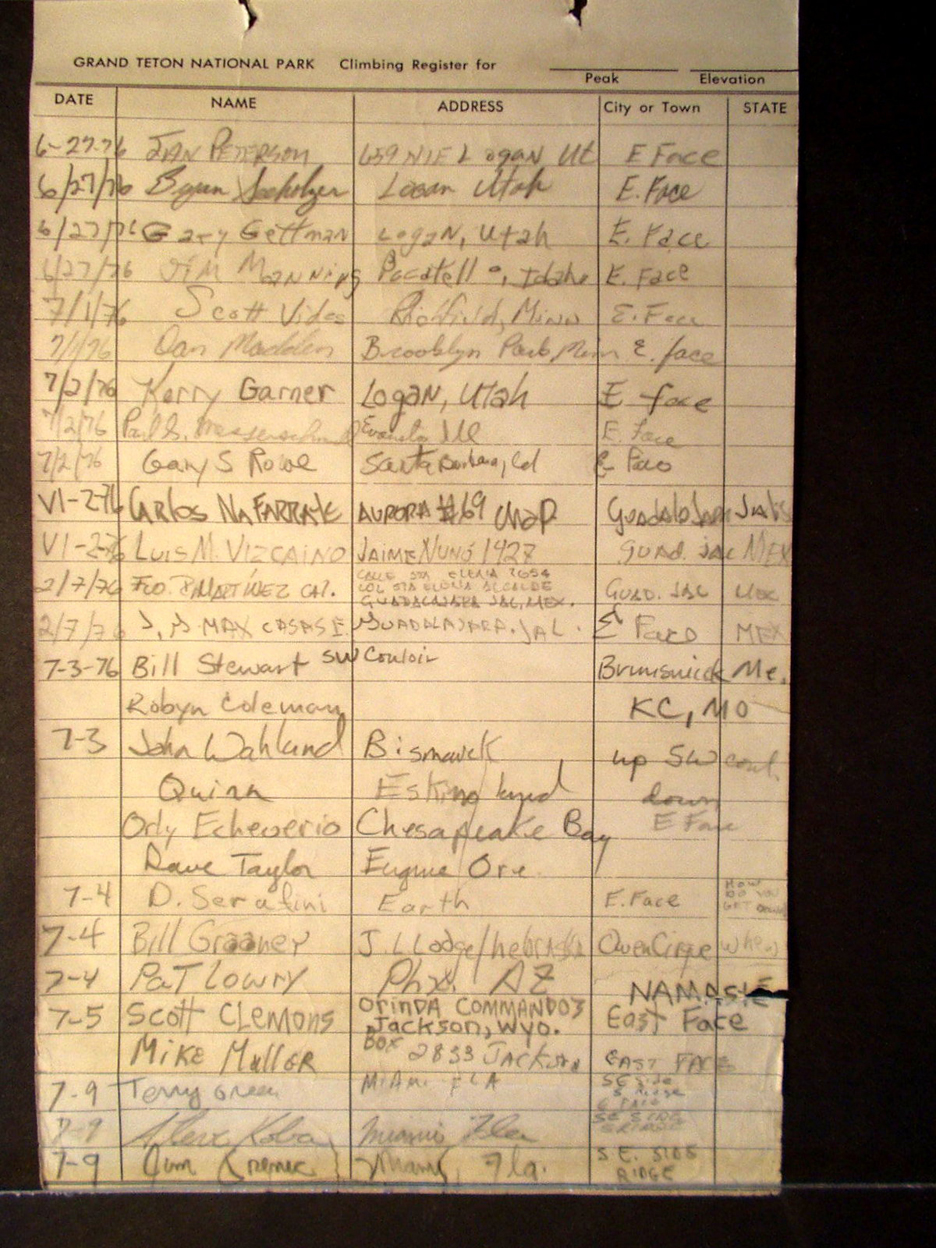 GRAND TETON NATIONAL PARK Climbing Register for
Peak Elevation
DATE NAME ADDRESS City or Town STATE
6-27-76 JAN PETERSON 659 N 1 E Logan Ut E Face
6/27/76 Logan Utah E. Face
6/27/76 Gary Gettman Logan, Utah E. Face
6/27/76 JIM Manning Pocatello, Idaho E. Face
7/1/76 Scott Vidas Richfield, Minn E. Face
7/1/76 Dan Madden Brooklyn Park, Minn E. face
7/2/76 Kerry Garner Logan, Utah E. face
7/2/76 Paul S. Evanston Ill E. Face
7/2/76 Gary S Rowe Santa Barbara, Cal E. Face
VI-2-76 Carlos NAFARRATE AURORA #69 GUADALAJARA JALIS
VI-2-76 LUIS M. VIZCAINO JAIME NUNÓ 1427 GUAD. JAL MEX
2/7/76 FCO. P. MARTÍNEZ CALLE STA ELENA 1654
COL STA ELENA ALCALDE
GUADALAJARA JAL, MEX. GUAD. JAL MEX
2/7/76 J. MAX CASAS E. GUADALAJARA. JAL. E Face MEX
7-3-76 Bill Stewart SW Couloir Brunswick Me.
Robyn Coleman KC, MO
7-3 John Wahlund Bismarck up SW coul.
Quinn Eskimo down
Ody Echeverio Chesapeake Bay E Face
Dave Taylor Eugene Ore.
7-4 D. Serafini Earth E. Face HOW DO YOU GET DOWN
7-4 Bill J. L Lodge/Nebraska Owen Cirque
7-4 PAT LOWRY Phx. AZ NAMASTE
7-5 Scott CLEMONS ORINDA COMMANDO'S
Jackson, Wyo. East Face
MIKE MULLOR BOX 2833 JACKSON EAST FACE
7-9 Terry Green MIAMI FLA SE Side
7-9 Koba Miami Fla SE SIDE
7-9 Jim Miami, Fla. S.E. SIDE
RIDGE